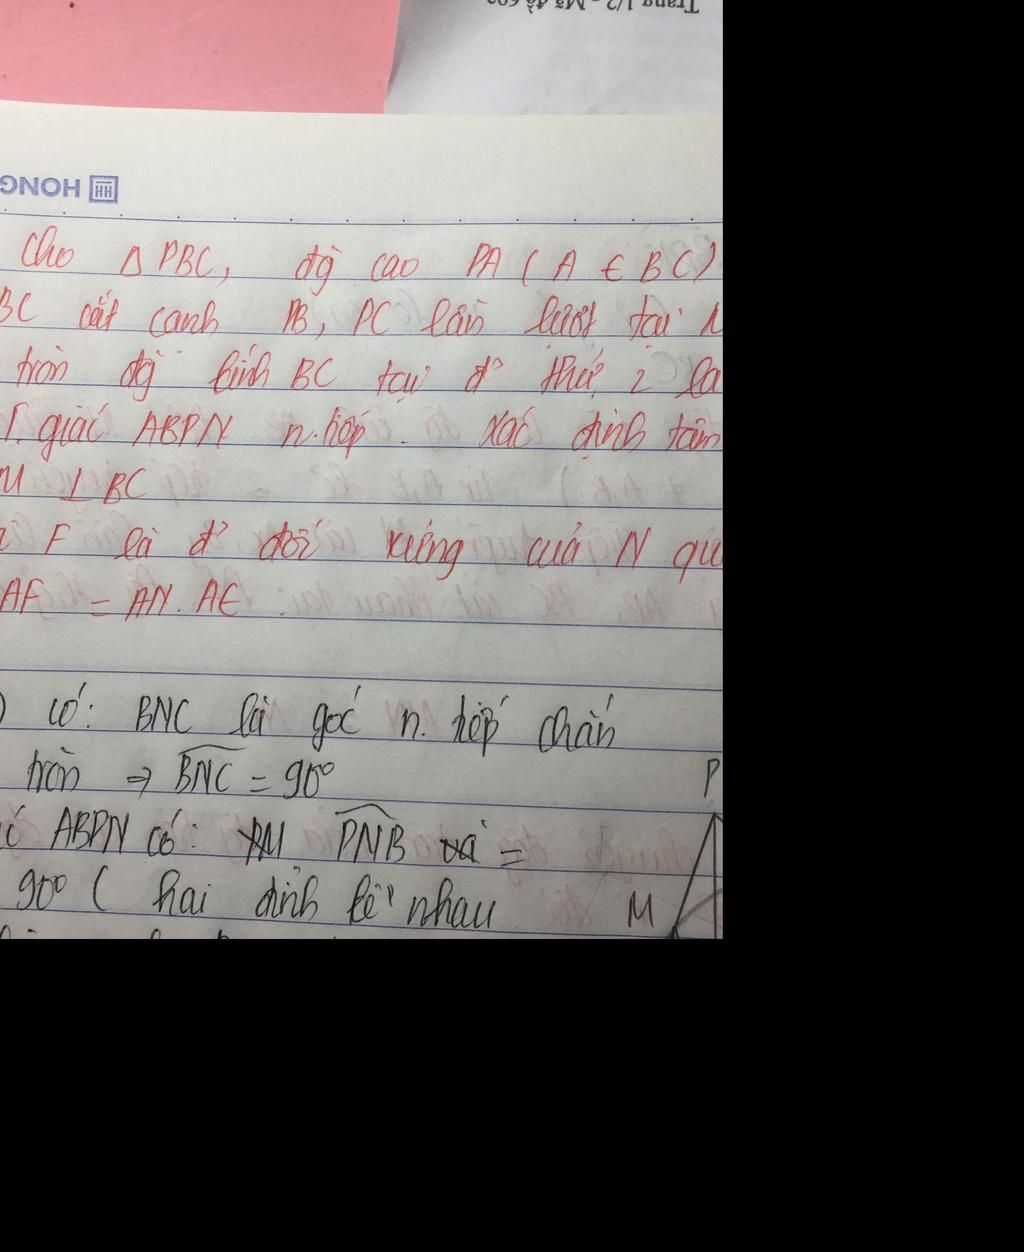 Trang 1/2 - Mã đề 602
HONG
Cho Δ PBC, đg cao PA ( A ∈ BC)
BC cắt cạnh PB, PC lần lượt tại
tròn đg kính BC tại đ' thứ 2 là
T. giác ABPN n.tiếp. Xác định tâm
M ⊥ BC
F là đ' đối xứng của N qu
AF = AN. AE
) có: BNC là góc n. tiếp chắn
tròn => BNC = 90°
ABPN có: PNB =
90° ( hai đỉnh kề nhau
P
M